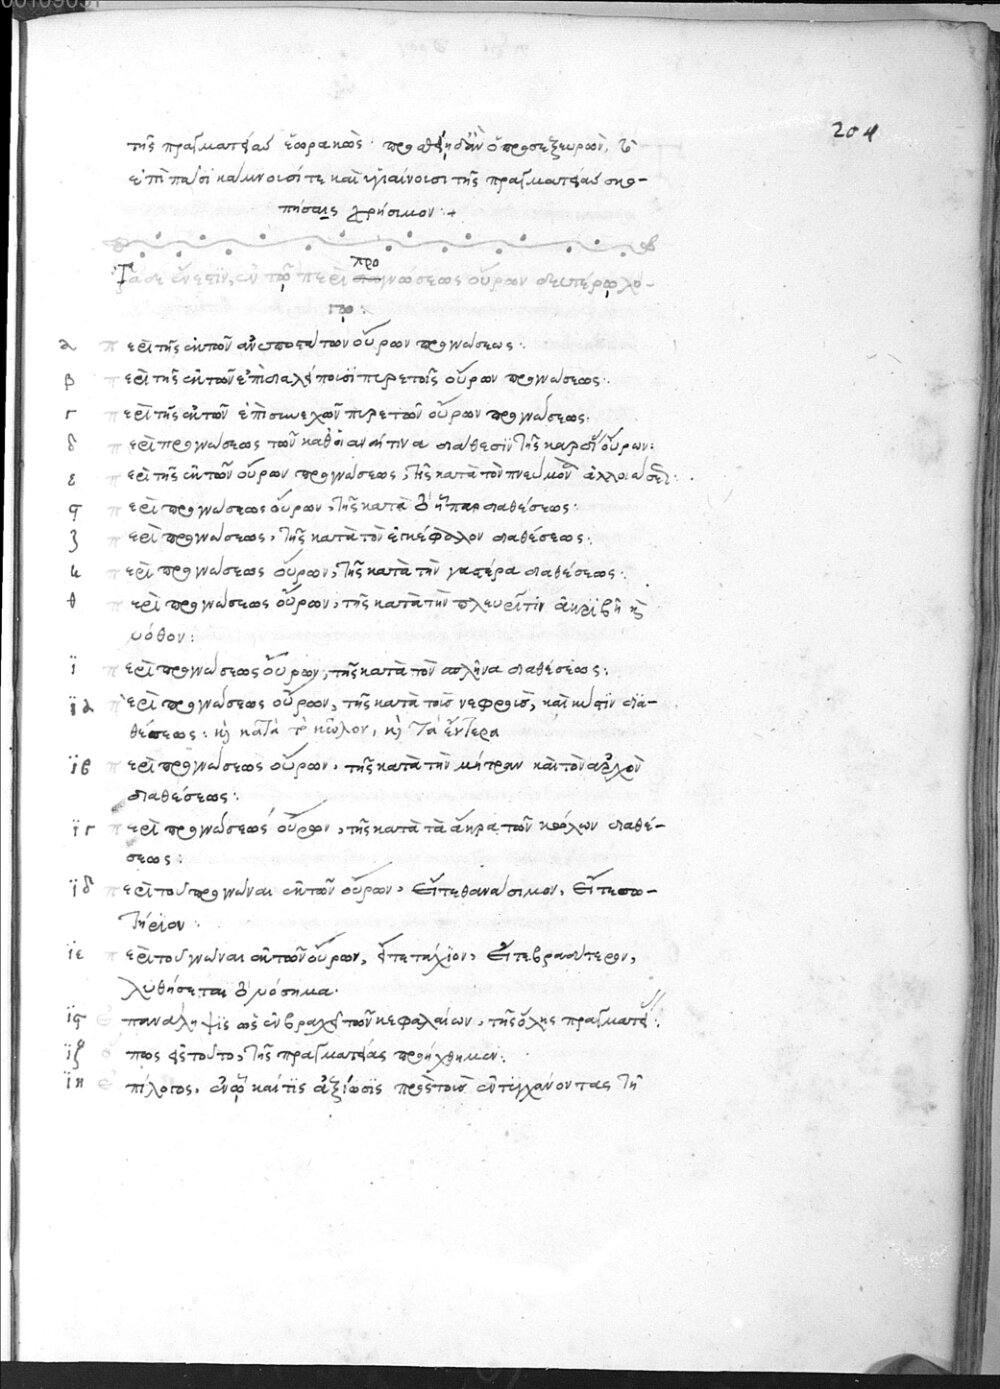 204
τῆς πραγματείας ἑωρακὼς· προσθείη δ' ἂν ὃ προσεξευρὼν,
ἐπὶ πᾶσι κάμνουσί τε καὶ ὑγιαίνουσι τῆς πραγματείας σκο-
πήσαις χρήσιμον :+
Τάδε ἔνεστιν, ἐν τῷ περὶ προγνώσεως οὔρων δευτέρῳ λό-
γῳ :
α περὶ τῆς ἐκ τῶν ἀνυποστάτων οὔρων προγνώσεως :
β περὶ τῆς ἐκ τῶν ἐπὶ διαλείπουσι πυρετοῖς οὔρων προγνώσεως :
γ περὶ τῆς ἐκ τῶν ἐπὶ συνεχῶν πυρετῶν οὔρων προγνώσεως :
δ περὶ προγνώσεως τῶν καθ' οἱανδήτινα διάθεσιν τῆς καρδίας οὔρων :
ε περὶ τῆς ἐκ τῶν οὔρων προγνώσεως, τῆς κατὰ τὸν πνεύμονα ἀλλοιώσεως :
ϛ περὶ προγνώσεως οὔρων, τῆς κατὰ τὸ ἧπαρ διαθέσεως :
ζ περὶ προγνώσεως, τῆς κατὰ τὸν ἐγκέφαλον διαθέσεως :
η περὶ προγνώσεως οὔρων, τῆς κατὰ τὴν γαστέρα διαθέσεως :
θ περὶ προγνώσεως οὔρων, τῆς κατὰ τὴν πλευρῖτιν ἀκριβῆ καὶ
νόθον :
ϊ περὶ προγνώσεως οὔρων, τῆς κατὰ τὸν σπλῆνα διαθέσεως :
ϊα περὶ προγνώσεως οὔρων, τῆς κατὰ τοὺς νεφροὺς, καὶ κύστιν δια-
θέσεως : καὶ κατὰ τὸ κῶλον, καὶ τὰ ἔντερα
ϊβ περὶ προγνώσεως οὔρων, τῆς κατὰ τὴν μήτραν καὶ τὸν ἀρχὸν
διαθέσεως :
ϊγ περὶ προγνώσεως οὔρων, τῆς κατὰ τὰ ἄκρα τῶν κώλων διαθέ-
σεως :
ϊδ περὶ τοῦ προγνῶναι ἐκ τῶν οὔρων, εἴτε θανάσιμον, εἴτε σω-
τήριον :
ϊε περὶ τοῦ γνῶναι ἐκ τῶν οὔρων, εἴτε ταχίον, εἴτε βραδύτερον,
λυθήσεται τὸ νόσημα.
ϊϛ ἐπανάληψις ὡς ἐν βραχεῖ τῶν κεφαλαίων, τῆς ὅλης πραγματείας :
ϊζ ὅπως εἰς τοῦτο, τῆς πραγματείας προήχθημεν :
ϊη ἐπίλογος, ἐν ᾧ καί τις ἀξίωσις πρὸς τοὺς ἐντυγχάνοντας τῇ